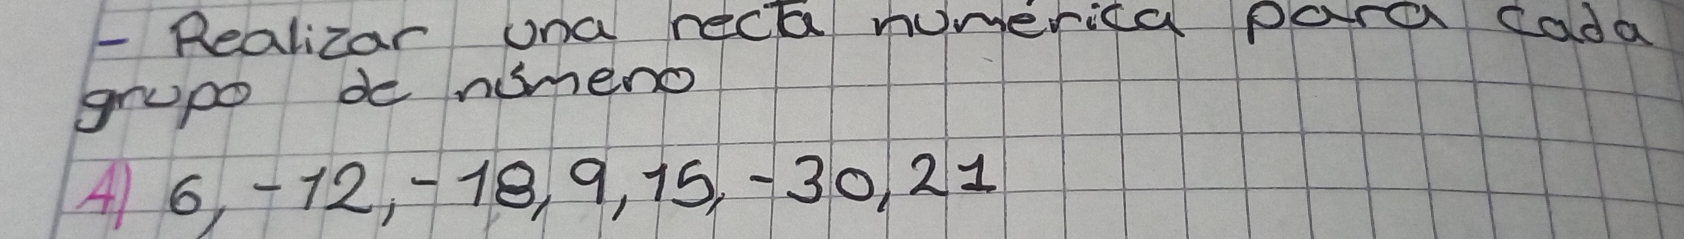 - Realizar una recta numérica para cada
grupo de número
A) 6, -12, -18, 9, 15, -30, 21